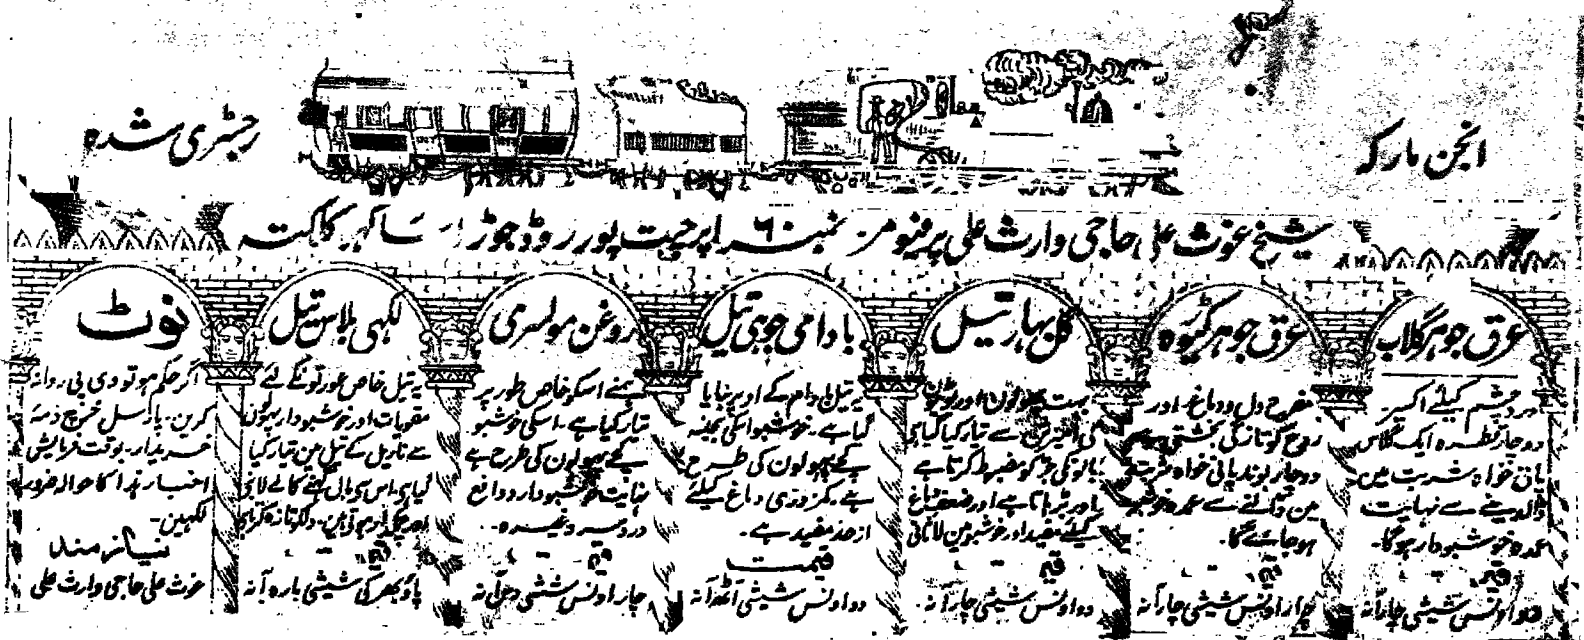 انجن مارکہ
رجسٹری شدہ
شیخ غوث علی حاجی وارث علی پرفیومرز نمبر ۶۰ اپر چیت پور روڈ جوڑا ساکہر کلکتہ
عرق جوہر گلاب
اور چشم کیلئے اکسیر
دوچار قطرہ ایک گلاس
پانی خواہ شربت میں
ڈالدینے سے نہایت
عمدہ خوشبودار ہوگا۔
قیمت
دو اونس شیشی چار آنہ
عرق جوہر کیوڑہ
مفرح دل و دماغ اور
روح کو تازگی بخشتی ہے
دوچار بوند پانی خواہ شربت
مین ڈالنے سے عمدہ خوشبو
ہوجائے گا۔
قیمت
چار اونس شیشی چار آنہ
گل بہار تیل
بہت پھولون اور
کی آمیزش سے تیار کیا گیا ہی
بالونکی جڑ کو مضبوط کرتا ہے
اور بڑہاتا ہے اور ضعف دماغ
کیلئے مفید اور خوشبو مین لاثانی
قیمت
دو اونس شیشی چار آنہ۔
بادامی جوہی تیل
یہ تیل بادام کے اوپر بنایا
گیا ہے۔ خوشبو اسکی بجنسہ
جوہی کے پھولون کی طرح
ہے۔ کمزوری دماغ کیلئے
ازحد مفید ہے۔
قیمت
دو اونس شیشی آٹھ آنہ
روغن مولسری
ہمنے اسکو خاص طور پر
تیار کیا ہے۔ اسکی خوشبو
کے پھولون کی طرح ہے
نہایت خوشبودار و دافع
درد سر وغیرہ۔
قیمت
چار اونس شیشی دس آنہ
لکہی بلاس تیل
یہ تیل خاص عورتونکے لئے
مقویات اور خوشبودار پہولون
سے ناریل کے تیل مین تیار کیا
گیا ہی اس سی بال گہنے کالے لانبی
اور چمکدار ہوتی ہین۔ دلکو تازہ کرتا ہی
قیمت
پاؤ بھر کی شیشی بارہ آنہ
نوٹ
اگر حکم ہو تو وی پی روانہ
کرین۔ پارسل خرچ ذمہ
خریدار۔ بوقت فرمایش
اخبار ہذا کا حوالہ ضرور
لکہین۔
نیازمند
غوث علی حاجی وارث علی